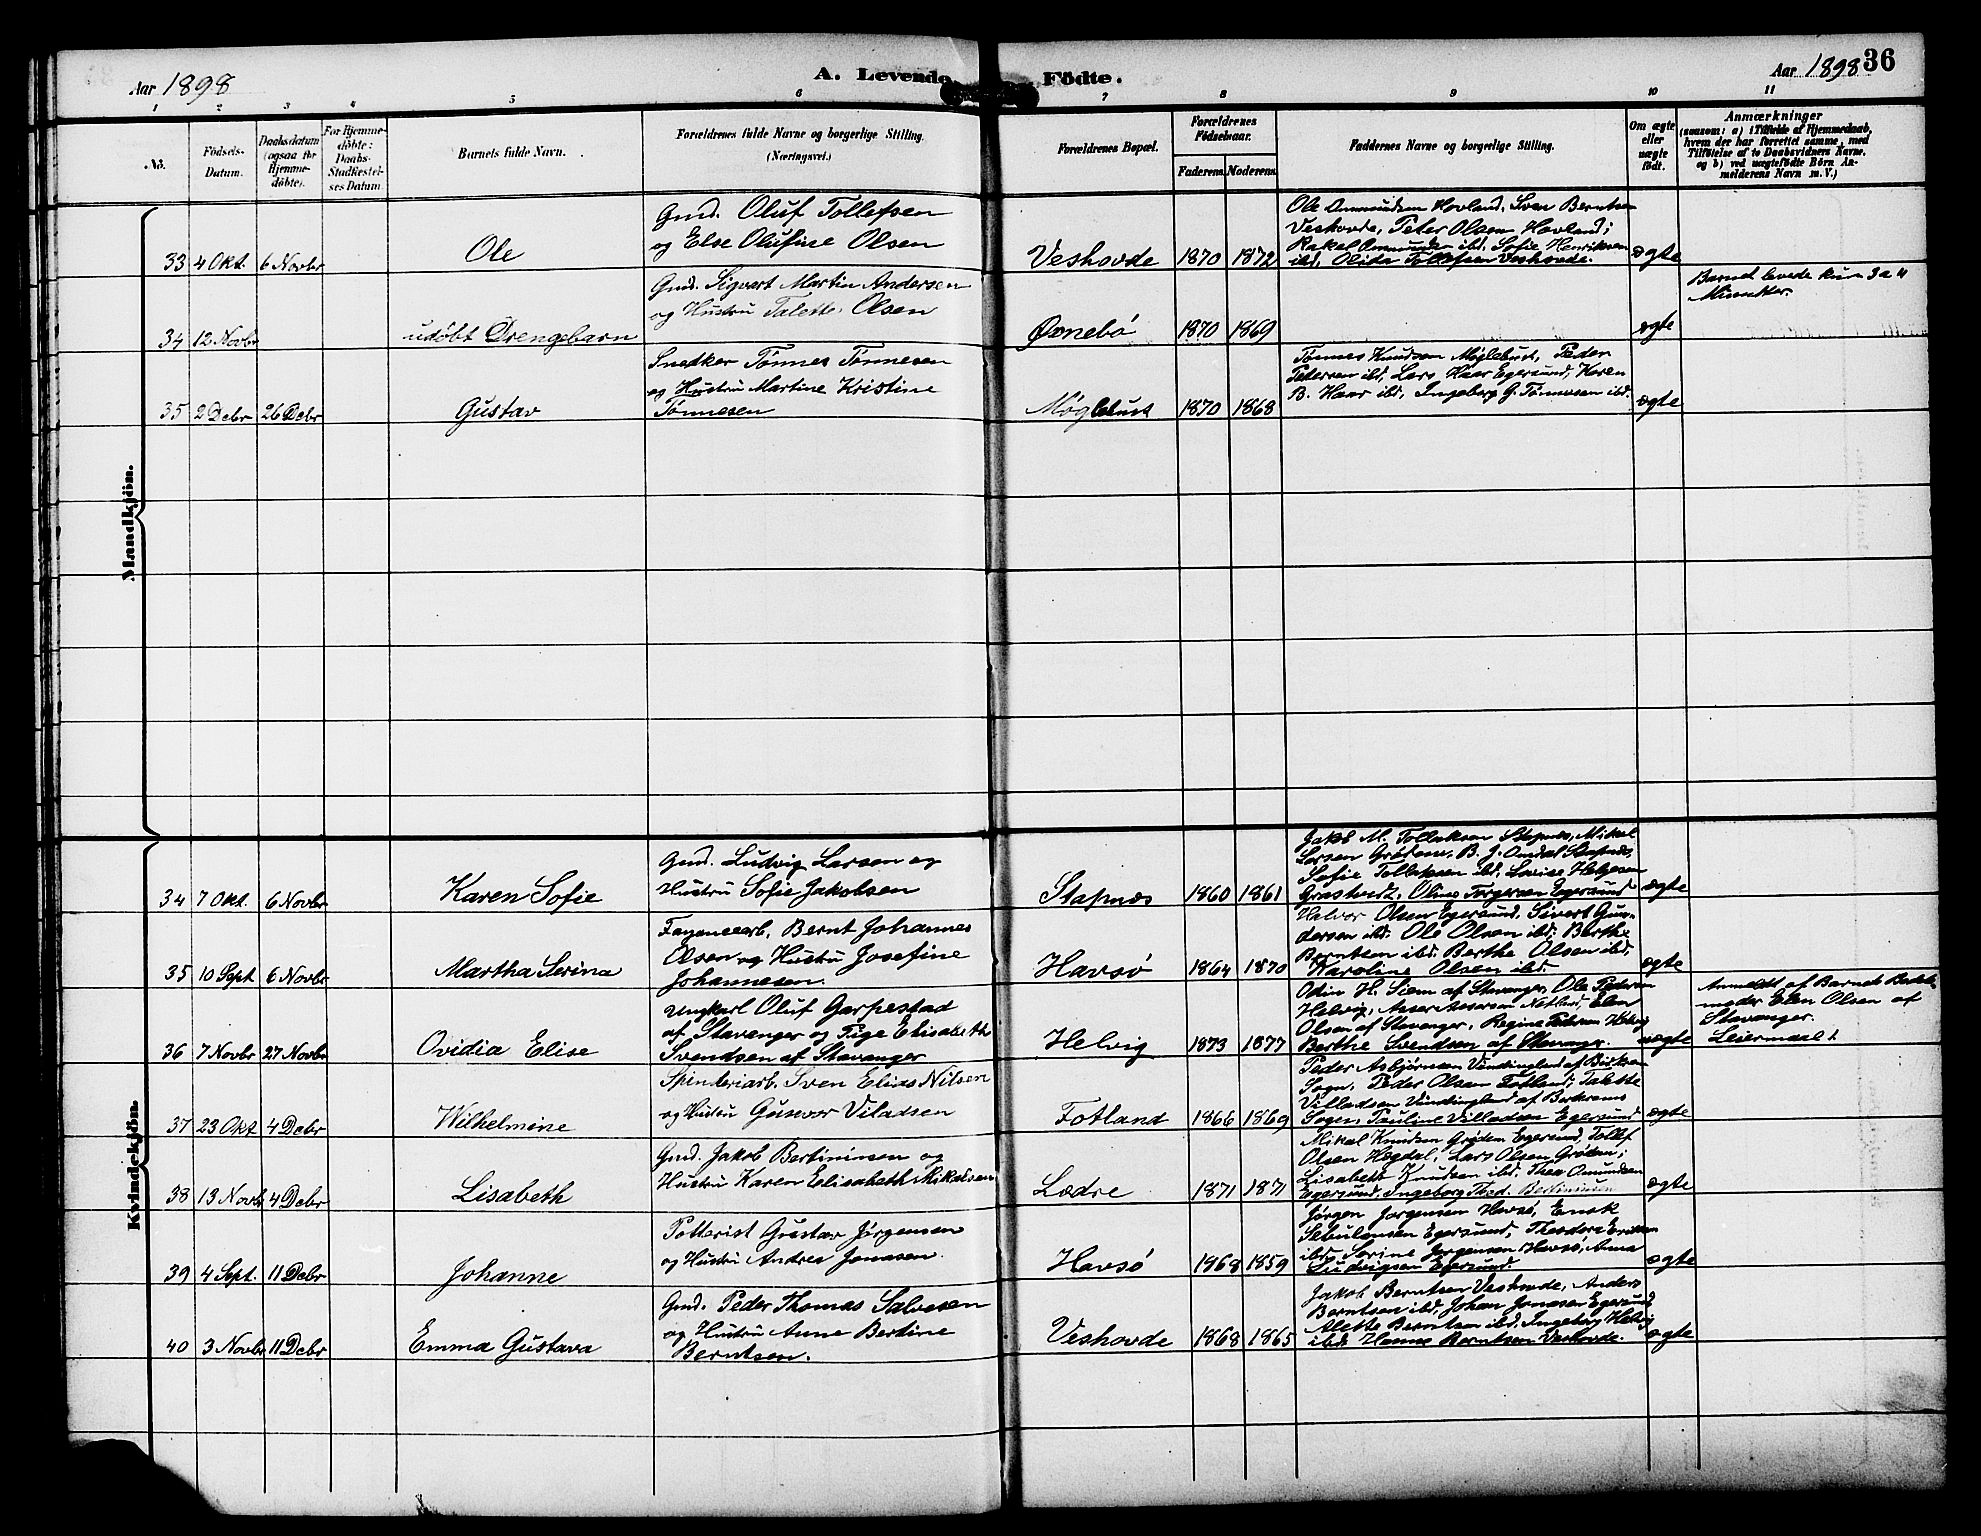 Aar 1898
A. Levende Födte.
Aar 1898
36
1 2 3 4 5 6 7 8 9 10 11
No.
Födsels-
Datum.
Daabsdatum
(ogsaa for
Hjemme-
döbte).
For Hjemme-
döbte:
Daabs-
Stadfæstel-
ses Datum
Barnets fulde Navn.
Forældrenes fulde Navne og borgerlige Stilling.
(Næringsvei.)
Forældrenes Bopæl.
Forældrenes
Födselsaar.
Faderens Moderens
Faddernes Navne og borgerlige Stilling.
Om ægte
eller
uægte
födt.
Anmærkninger
(saasom: a) i Tilfælde af Hjemmedaab,
hvem der har forrettet samme, med
Tilföielse af to Daabsvidners Navne,
og b) ved uægtefödte Börn An-
melderens Navn m. V.)
Mandkjön.
33 4 Okt. 6 Novbr
Ole
Gmd. Oluf Tollefsen
og Else Olufine Olsen
Veshovde 1870 1872
Ole Ommundsen Hovland, Sven Berntsen
Veshovde, Peter Olsen Hovland;
Rakel Ommundsen ibd. Sofie Henriksen
ibd. Olida Tollefsen Veshovde.
ægte
34 12 Novbr
udøbt Drengebarn
Gmd. Sigvart Martin Andersen
og Hustru Talette Olsen
Ovnebö 1870 1869
ægte
Barnet levede kun 3 a 4
Minutter.
35 2 Debr 26 Debr
Gustav
Snedker Tønnes Tønnesen
og Hustru Martine Kristine
Tønnesen
Møglebust 1870 1868
Tønnes Knudsen Møglebust, Peder
Pedersen ibd, Lars Haar Egersund, Karen
B. Haar ibd, Ingeborg G. Tønnesen ibd.
ægte
Kvindekjön.
34 7 Okt. 6 Novbr
Karen Sofie
Gmd. Ludvig Larsen og
Hustru Sofie Jakobsen
Stapnæs 1860 1861
Jakob M. Tollaksen Stapnæs, Mikal
Larsen Grødem, B. J. Omdal Stapnæs,
Sofie Tollaksen ibd, Lovise Helgesen
Grastvedt, Oline Torgersen Egersund
ægte
35 10 Sept 6 Novbr
Martha Serina
Fayancearb. Bernt Johannes
Olsen og Hustru Josefine
Johannesen.
Havsø 1864 1870
Halvor Olsen Egersund, Sivert Gun-
dersen ibd. Ole Olsen ibd. Berthe
Berntsen ibd. Berthe Olsen ibd,
Karoline Olsen ibd.
ægte
36 7 Novbr 27 Novbr
Ovidia Elise
Ungkarl Oluf Garpestad
af Stavanger og Pige Elisabeth
Svendsen af Stavanger
Helvig 1873 1877
Odin H. Siem af Stavanger, Ole Pedersen
Helvig, Asser Assersen Netland, Elen
Olsen af Stavanger, Regine Pedersen Helvig
Berthe Svendsen af Stavanger.
uægte
Anmeldt af Barnets Bedste
moder Elen Olsen af
Stavanger.
Leiermaal 1
37 23 Okt 4 Debr
Wilhelmine
Spinderiarb. Sven Elias Nilsen
og Hustru Gunvor Viladsen
Fotland 1866 1869
Peder Asbjørnsen Vundingland af Birkrem
Sogn, Peder Olsen Fotland; Talette
Villadsen Vundingland af Birkrems
Sogn, Pauline Villadsen Egersund
ægte
38 13 Novbr 4 Debr
Lisabeth
Gmd. Jakob Bertininsen og
Hustru Karen Elisabeth Mikalsen
Lædre 1871 1871
Mikal Knudsen Grødem Egersund, Tollef
Olsen Hægdal, Lars Olsen Grødem;
Lisabeth Knudsen ibd. Thea Omundsen
Egersund, Ingeborg Thed. Bertininsen
ægte
39 4 Sept. 11 Debr
Johanne
Potterist Gustav Jørgensen
og Hustru Andrea Jonasen
Havsø 1868 1859
Jørgen Jørgensen Havsø, Enok
Sebulonsen Egersund, Theodora Eriksen
ibd, Serine Jørgensen Havsø, Anna
Ludvigsen Egersund
ægte
40 3 Novbr 11 Debr
Emma Gustava
Gmd. Peder Thomas Salvesen
og Hustru Anne Bertine
Berntsen.
Veshovde 1868 1865
Jakob Berntsen Veshovde, Anders
Berntsen ibd, Johan Jonasen Egersund
Alette Berntsen ibd, Ingeborg Helvig
ibd. Hanne Berntsen Veshovde.
ægte